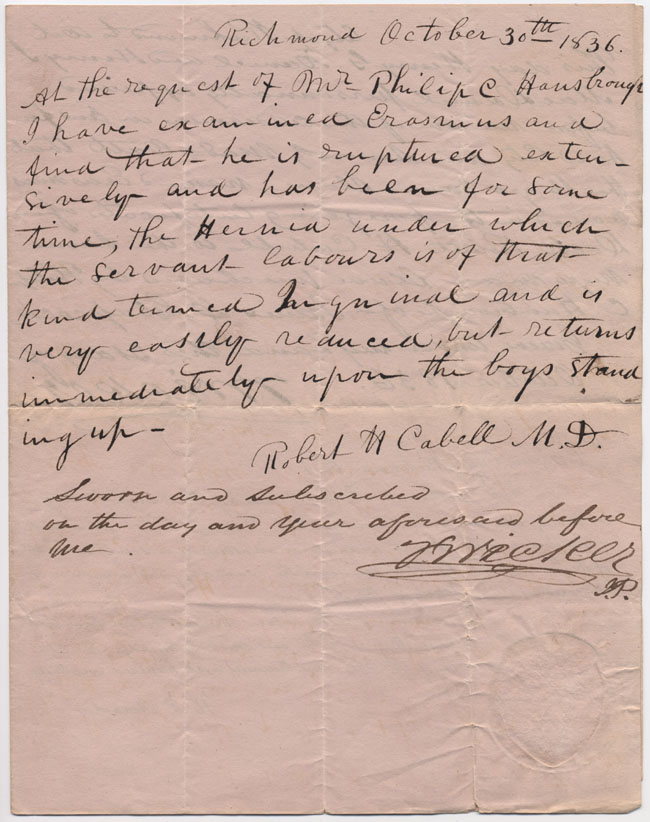 Richmond October 30th 1836.
At the request of Mr Philip C Hansbrough
I have examined Erasmus and
find that he is ruptured exten-
sively and has been for some
time, the Hernia under which
the servant labours is of that
kind termed Inguinal and is
very easily reduced, but returns
immediately upon the boys stand
ing up-
Robert H Cabell M.D.
Sworn and subscribed
on the day and year aforesaid before
me.
J.P.